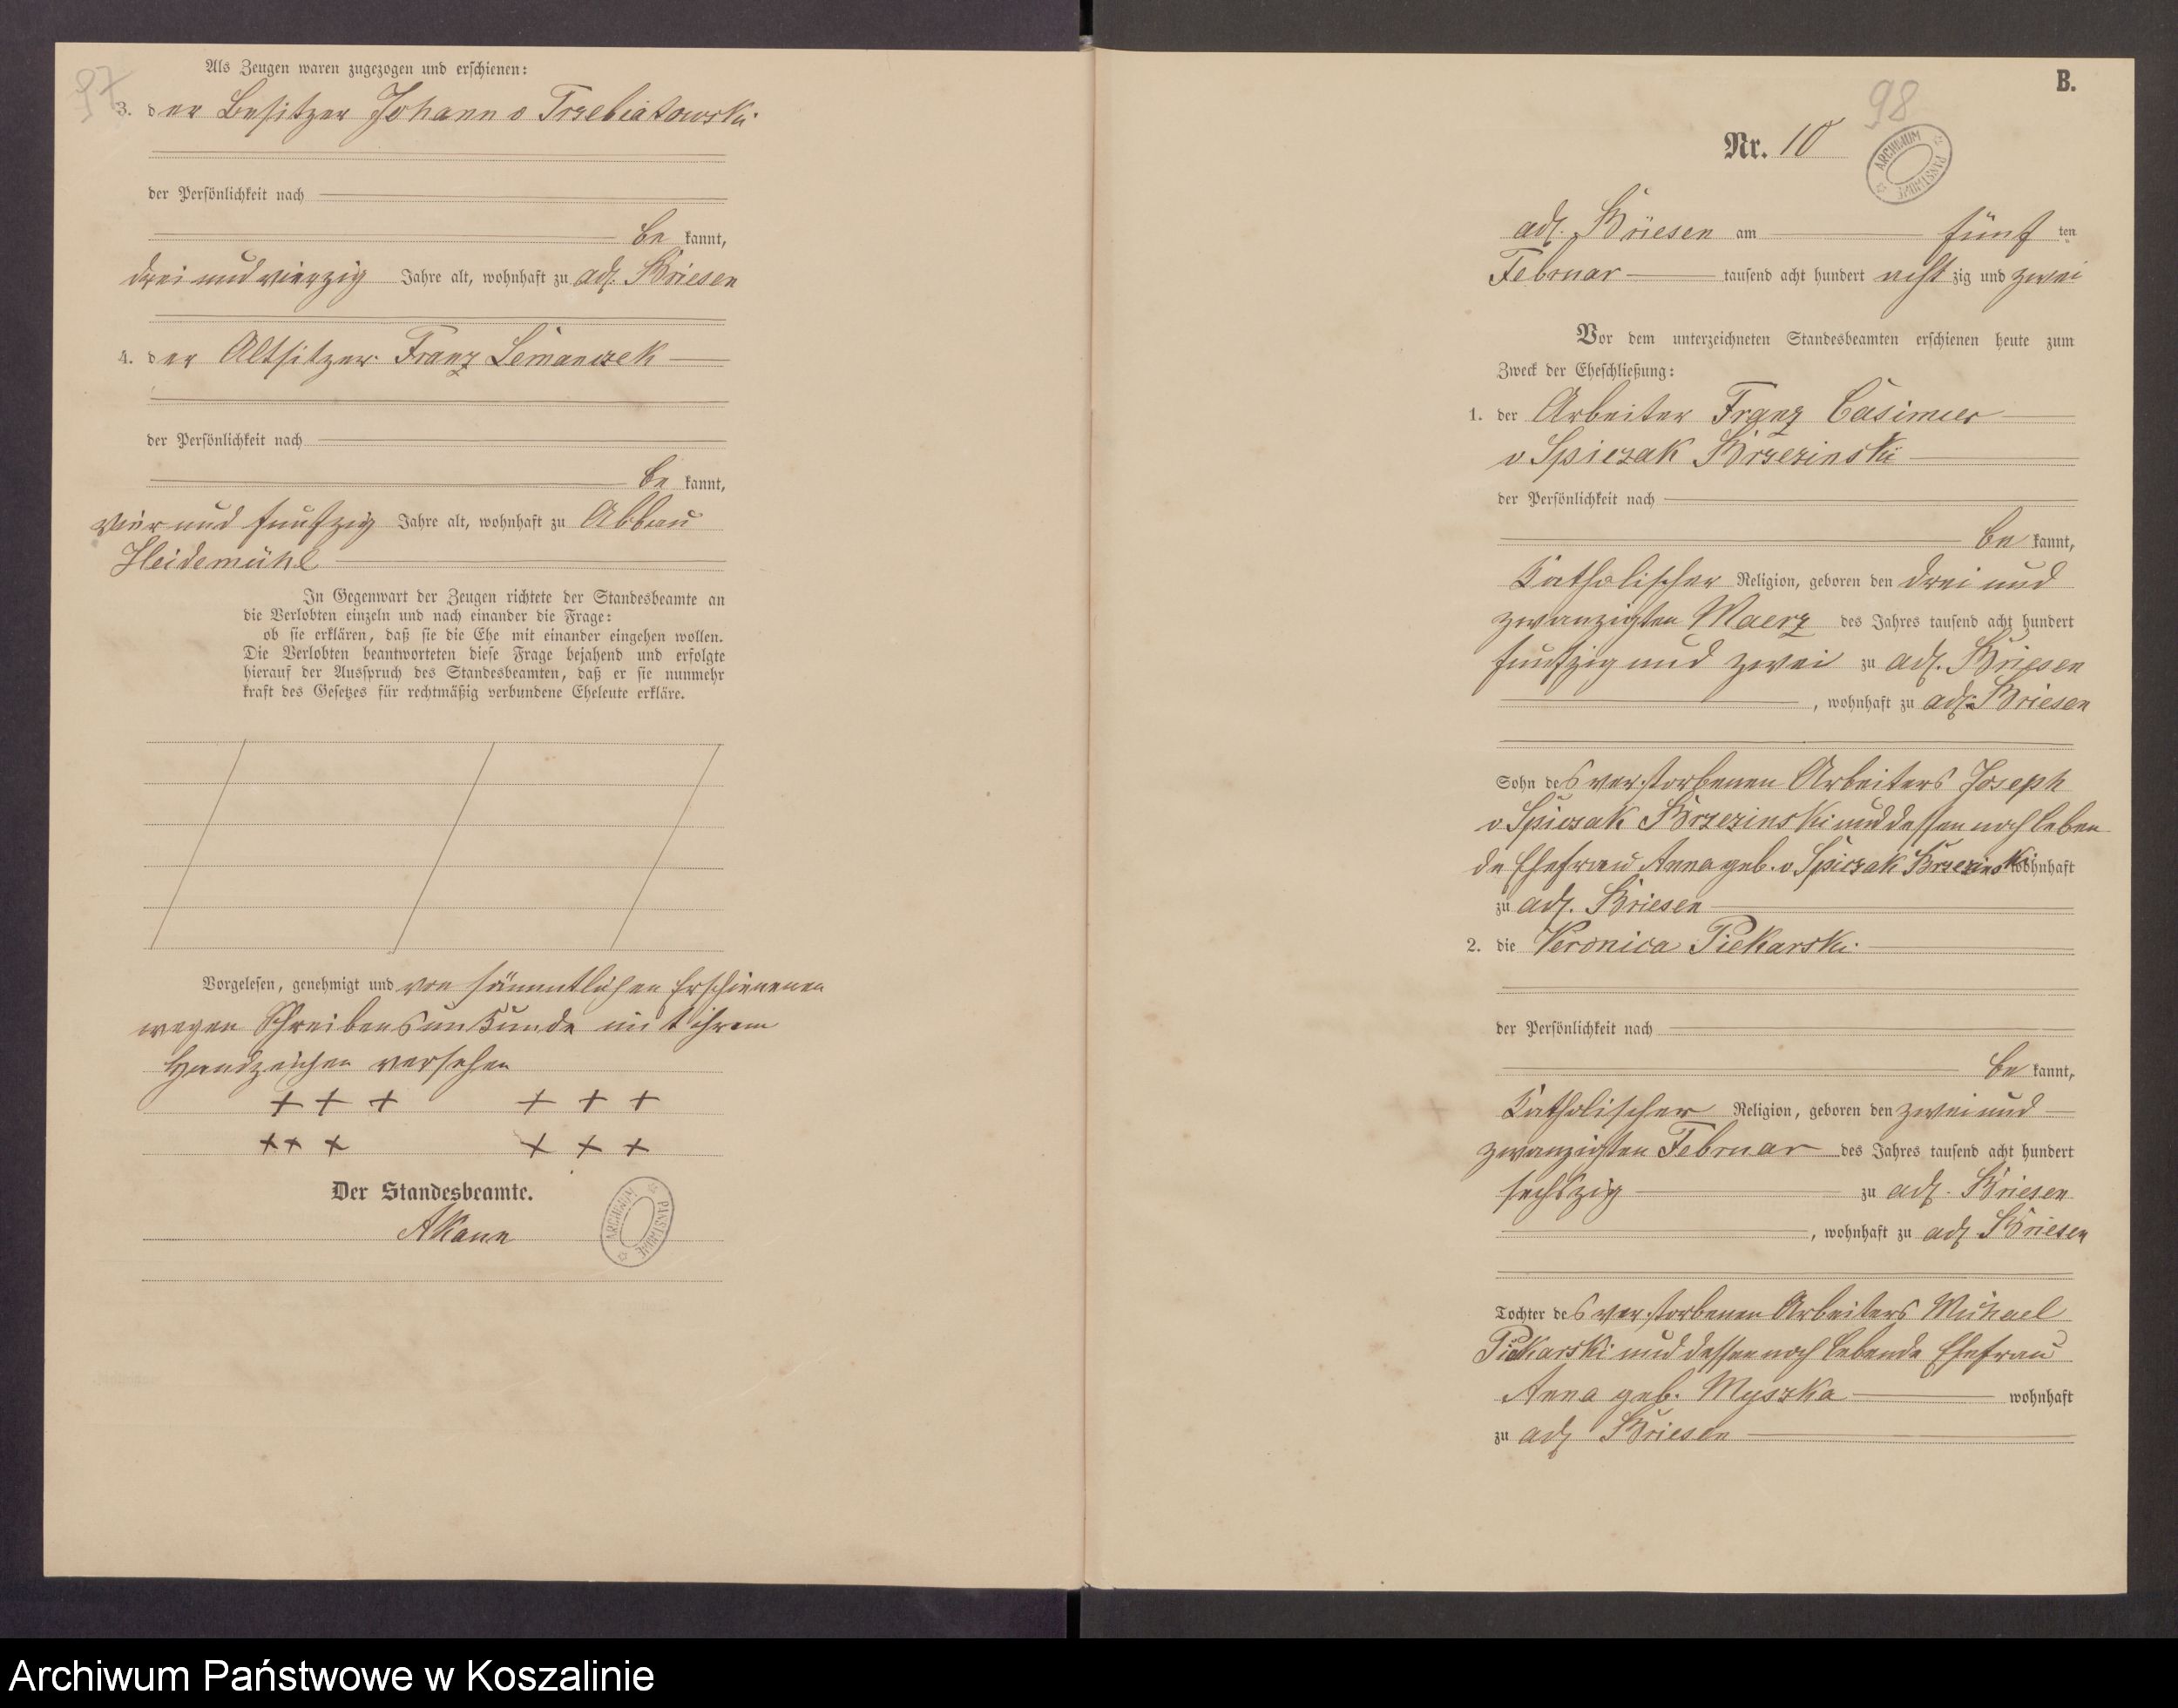 97
Als Zeugen waren zugezogen und erschienen:
3. der Besitzer Johann v Trzebiatowski
der Persönlichkeit nach
be kannt,
drei und vierzig Jahre alt, wohnhaft zu adl. Briesen
4. der Altsitzer Franz Lemanczek
der Persönlichkeit nach
be kannt,
vier und funfzig Jahre alt, wohnhaft zu Abbau
Heidemühl
In Gegenwart der Zeugen richtete der Standesbeamte an
die Verlobten einzeln und nach einander die Frage:
ob sie erklären, daß sie die Ehe mit einander eingehen wollen.
Die Verlobten beantworteten diese Frage bejahend und erfolgte
hierauf der Ausspruch des Standesbeamten, daß er sie nunmehr
kraft des Gesetzes für rechtmäßig verbundene Eheleute erkläre.
Vorgelesen, genehmigt und von sämmtlichen Erschienenen
wegen Schreibensunkunde mit ihrem
Handzeichen versehen
+ + + + + +
+ + + + + +
Der Standesbeamte.
AKann
ARCHIWUM PAŃSTWOWE
B.
98
Nr. 10
ARCHIWUM PAŃSTWOWE
adl. Briesen am fünf ten
Februar tausend acht hundert acht zig und zwei
Vor dem unterzeichneten Standesbeamten erschienen heute zum
Zweck der Eheschließung:
1. der Arbeiter Franz Casimir
v Spiczak Brzezinski
der Persönlichkeit nach
be kannt,
Katholischer Religion, geboren den drei und
zwanzigsten Maerz des Jahres tausend acht hundert
funfzig und zwei zu adl. Briesen
, wohnhaft zu adl. Briesen
Sohn des verstorbenen Arbeiters Joseph
v Spiczak Brzezinski und dessen noch leben
de Ehefrau Anna geb. v Spiczak Brzezinski wohnhaft
zu adl. Briesen
2. die Veronica Piekarski
der Persönlichkeit nach
be kannt,
Katholischer Religion, geboren den zwei und
zwanzigsten Februar des Jahres tausend acht hundert
sechszig zu adl. Briesen
, wohnhaft zu adl Briesen
Tochter des verstorbenen Arbeiters Michael
Piekarski und dessen noch lebende Ehefrau
Anna geb. Myszka wohnhaft
zu adl Briesen
Archiwum Państwowe w Koszalinie